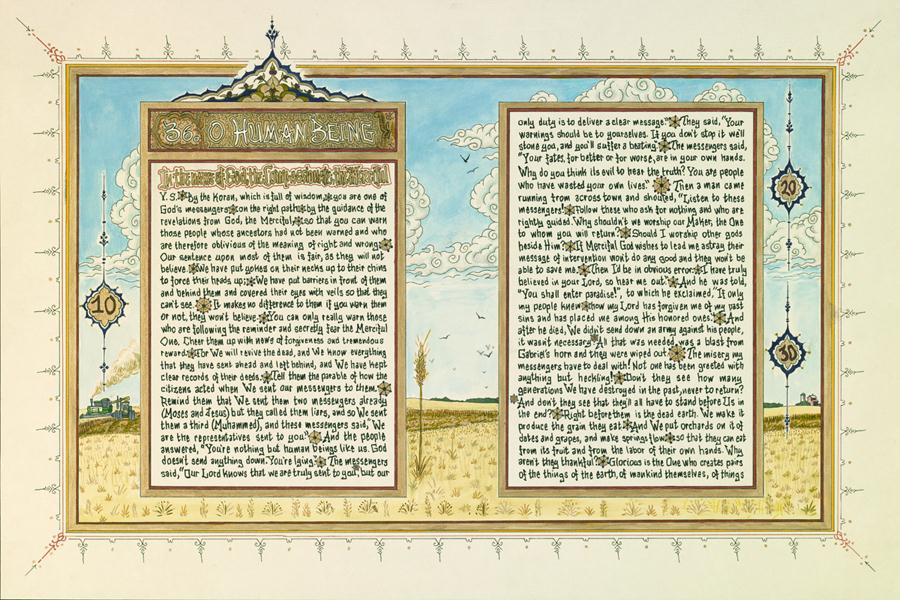 36. O HUMAN BEING
In the name of God, the Compassionate, the Merciful
Y. S. By the Koran, which is full of wisdom, you are one of
God's messengers on the right path by the guidance of the
revelations from God, the Merciful, so that you can warn
those people whose ancestors had not been warned and who
are therefore oblivious of the meaning of right and wrong.
Our sentence upon most of them is fair, as they will not
believe. We have put yokes on their necks up to their chins
to force their heads up; We have put barriers in front of them
and behind them and covered their eyes with veils so that they
can't see. It makes no difference to them if you warn them
or not, they won't believe. You can only really warn those
who are following the reminder and secretly fear the Merciful
One. Cheer them up with news of forgiveness and tremendous
reward. For We will revive the dead, and We know everything
that they have sent ahead and left behind, and We have kept
clear records of their deeds. Tell them the parable of how the
citizens acted when We sent our messengers to them.
Remind them that We sent them two messengers already
(Moses and Jesus) but they called them liars, and so We sent
them a third (Muhammed), and these messengers said, "We
are the representatives sent to you." And the people
answered, "You're nothing but human beings like us. God
doesn't send anything down. You're lying." The messengers
said, "Our Lord knows that we are truly sent to you, but our
10
only duty is to deliver a clear message." They said, "Your
warnings should be to yourselves. If you don't stop it we'll
stone you, and you'll suffer a beating." The messengers said,
"Your fates, for better or for worse, are in your own hands.
Why do you think its evil to hear the truth? You are people
who have wasted your own lives." Then a man came
running from across town and shouted, "Listen to these
messengers! Follow those who ask for nothing and who are
rightly guided. Why shouldn't we worship our Maker, the One
to whom you will return? Should I worship other gods
beside Him? If Merciful God wishes to lead me astray their
message of intervention wont do any good and they won't be
able to save me, Then I'd be in obvious error. I have truly
believed in your Lord, so hear me out." And he was told,
"You shall enter paradise!", to which he exclaimed, "If only
my people knew how my Lord has forgiven me of my past
sins and has placed me among His honored ones." And
after he died, We didn't send down an army against his people,
it wasn't necessary. All that was needed was a blast from
Gabriel's horn and they were wiped out. The misery my
messengers have to deal with! Not one has been greeted with
anything but heckling! Don't they see how many
generations We have destroyed in the past, never to return?
And don't they see that they'll all have to stand before Us in
the end? Right before them is the dead earth. We make it
produce the grain they eat. And We put orchards on it of
dates and grapes, and make springs flow so that they can eat
from its fruit and from the labor of their own hands. Why
aren't they thankful? Glorious is the One who creates pairs
of the things of the earth, of mankind themselves, of things
20
30